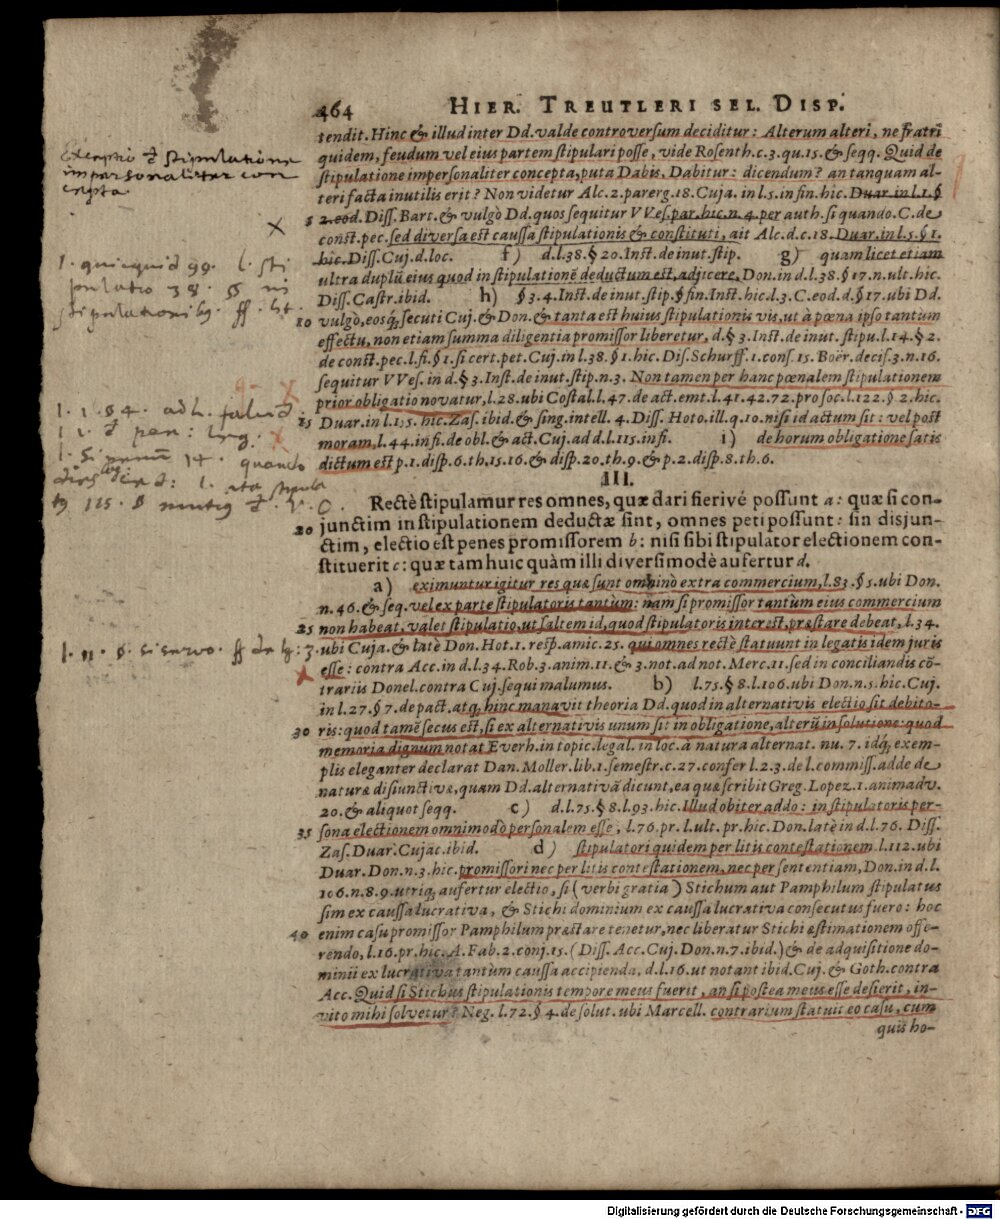 464 HIER. TREUTLERI SEL. DISP.
tendit. Hinc & illud inter Dd. valde controversum deciditur: Alterum alteri, ne fratri
quidem, feudum vel eius partem stipulari posse, vide Rosenth. c. 3. qu. 15. & seqq. Quid de
stipulatione impersonaliter concepta, puta Dabis, Dabitur: dicendum? an tanquam al-
teri facta inutilis erit? Non videtur Alc. 2. parerg. 18. Cuja. in l. 5. in fin. hic. Duar. in l. 1. §
5 2. eod. Diss. Bart. & vulgò Dd. quos sequitur VVes. par. hic. n. 4. per auth. si quando. C. de
const. pec. sed diversa est caussa stipulationis & constituti, ait Alc. d. c. 18. Duar. in l. 5. § 1.
hic. Diss. Cuj. d. loc. f) d. l. 38. § 20. Inst. de inut. stip. g) quam licet etiam
ultra duplū eius quod in stipulationē deductum est, adjicere, Don. in d. l. 38. § 17. n. ult. hic.
Diss. Castr. ibid. h) § 3. 4. Inst. de inut. stip. § fin. Inst. hic. l. 3. C. eod. d. § 17. ubi Dd.
10 vulgò, eosq; secuti Cuj. & Don. & tanta est huius stipulationis vis, ut à pœna ipso tantum
effectu, non etiam summa diligentia promissor liberetur, d. § 3. Inst. de inut. stipu. l. 14. § 2.
de const. pec. l. fi. § 1. si cert. pet. Cuj. in l. 38. § 1. hic. Dis. Schurff. 1. cons. 15. Boër. decis. 3. n. 16.
sequitur VVes. in d. § 3. Inst. de inut. stip. n. 3. Non tamen per hanc pœnalem stipulationem
prior obligatio novatur, l. 28. ubi Costal. l. 47. de act. emt. l. 41. 42. 72. pro soc. l. 122. § 2. hic.
15 Duar. in l. 135. hic. Zas. ibid. & sing. intell. 4. Diss. Hoto. ill. q. 10. nisi id actum sit: vel post
moram, l. 44. in fi. de obl. & act. Cuj. ad d. l. 115. in fi. i) de horum obligatione satis
dictum est p. 1. disp. 6. th. 15. 16. & disp. 20. th. 9. & p. 2. disp. 8. th. 6.
III.
Rectè stipulamur res omnes, quæ dari fierivé possunt a: quæ si con-
20 junctim in stipulationem deductæ sint, omnes peti possunt: sin disjun-
ctim, electio est penes promissorem b: nisi sibi stipulator electionem con-
stituerit c: quæ tam huic quàm illi diversimodè aufertur d.
a) eximuntur igitur res quæ sunt omninò extra commercium, l. 83. § 5. ubi Don.
n. 46. & seq. vel ex parte stipulatoris tantùm: nam si promissor tantùm eius commercium
25 non habeat, valet stipulatio, ut saltem id, quod stipulatoris interest, præstare debeat, l. 34.
ubi Cuja. & latè Don. Hot. 1. resp. amic. 25. qui omnes rectè statuunt in legatis idem juris
esse: contra Acc. in d. l. 34. Rob. 3. anim. 11. & 3. not. ad not. Merc. 11. sed in conciliandis cō-
trariis Donel. contra Cuj. sequi malumus. b) l. 75. § 8. l. 106. ubi Don. n. 5. hic. Cuj.
in l. 27. § 7. de pact. atq; hinc manavit theoria Dd. quod in alternativis electio sit debito-
30 ris: quod tamē secus est, si ex alternativis unum sit in obligatione, alterū in solutione: quod
memoria dignum notat Everh. in topic. legal. in loc. à natura alternat. nu. 7. idq; exem-
plis eleganter declarat Dan. Moller. lib. 1. semestr. c. 27. confer l. 2. 3. de l. commiss. adde de
natura disiunctivæ, quam Dd. alternativā dicunt, ea quæ scribit Greg. Lopez. 1. animadv.
20. & aliquot seqq. c) d. l. 75. § 8. l. 93. hic. Illud obiter addo: in stipulatoris per-
35 sona electionem omnimodò personalem esse, l. 76. pr. l. ult. pr. hic. Don. latè in d. l. 76. Diss.
Zas. Duar. Cujac. ibid. d) stipulatori quidem per litis contestationem. l. 112. ubi
Duar. Don. n. 3. hic. promissori nec per litis contestationem, nec per sententiam, Don. in d. l.
106. n. 8. 9. utriq; aufertur electio, si (verbi gratia) Stichum aut Pamphilum stipulatus
sim ex caussa lucrativa, & Stichi dominium ex caussa lucrativa consecutus fuero: hoc
40 enim casu promissor Pamphilum præstare tenetur, nec liberatur Stichi æstimationem offe-
rendo, l. 16. pr. hic. A. Fab. 2. conj. 15. (Diss. Acc. Cuj. Don. n. 7. ibid.) & de adquisitione do-
minii ex lucrativa tantùm caussa accipienda, d. l. 16. ut notant ibid. Cuj. & Goth. contra
Acc. Quid si Stichus stipulationis tempore meus fuerit, an si postea meus esse desierit, in-
vito mihi solvetur? Neg. l. 72. § 4. de solut. ubi Marcell. contrarium statuit eo casu, cum
quis ho-
stipulatione
impersonaliter con
cepta
l. quicquid 99. l. sti
pulatio 38. §
stipulationibg. ff.
quando
Digitalisierung gefördert durch die Deutsche Forschungsgemeinschaft - DFG